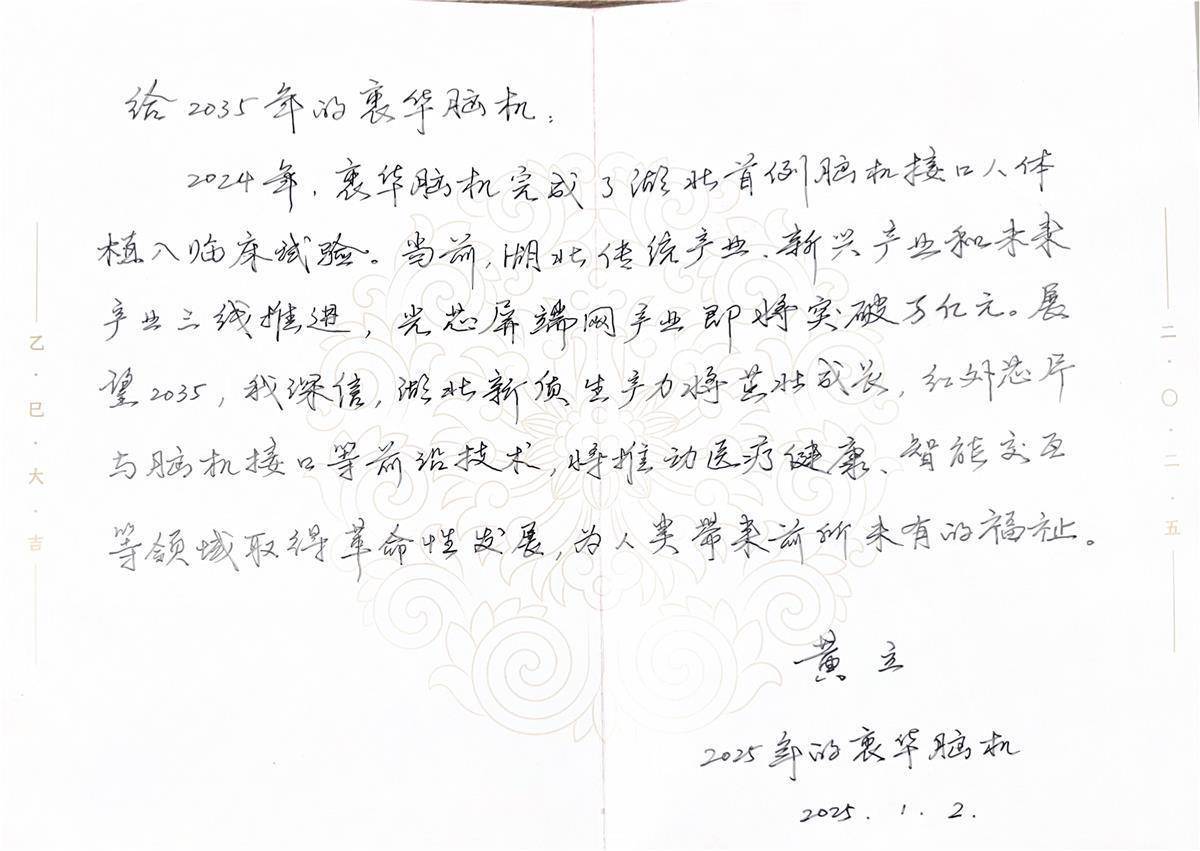 给2035年的衷华脑机:
2024年,衷华脑机完成了湖北首例脑机接口人体
植入临床试验。当前,湖北传统产业、新兴产业和未来
产业三线推进,光芯屏端网产业即将突破万亿元。展
望2035,我深信,湖北新质生产力将茁壮成长,红外芯片
与脑机接口等前沿技术,将推动医疗健康、智能交互
等领域取得革命性发展,为人类带来前所未有的福祉。
黄立
2025年的衷华脑机
2025.1.2.
乙·巳·大·吉
二·〇·二·五